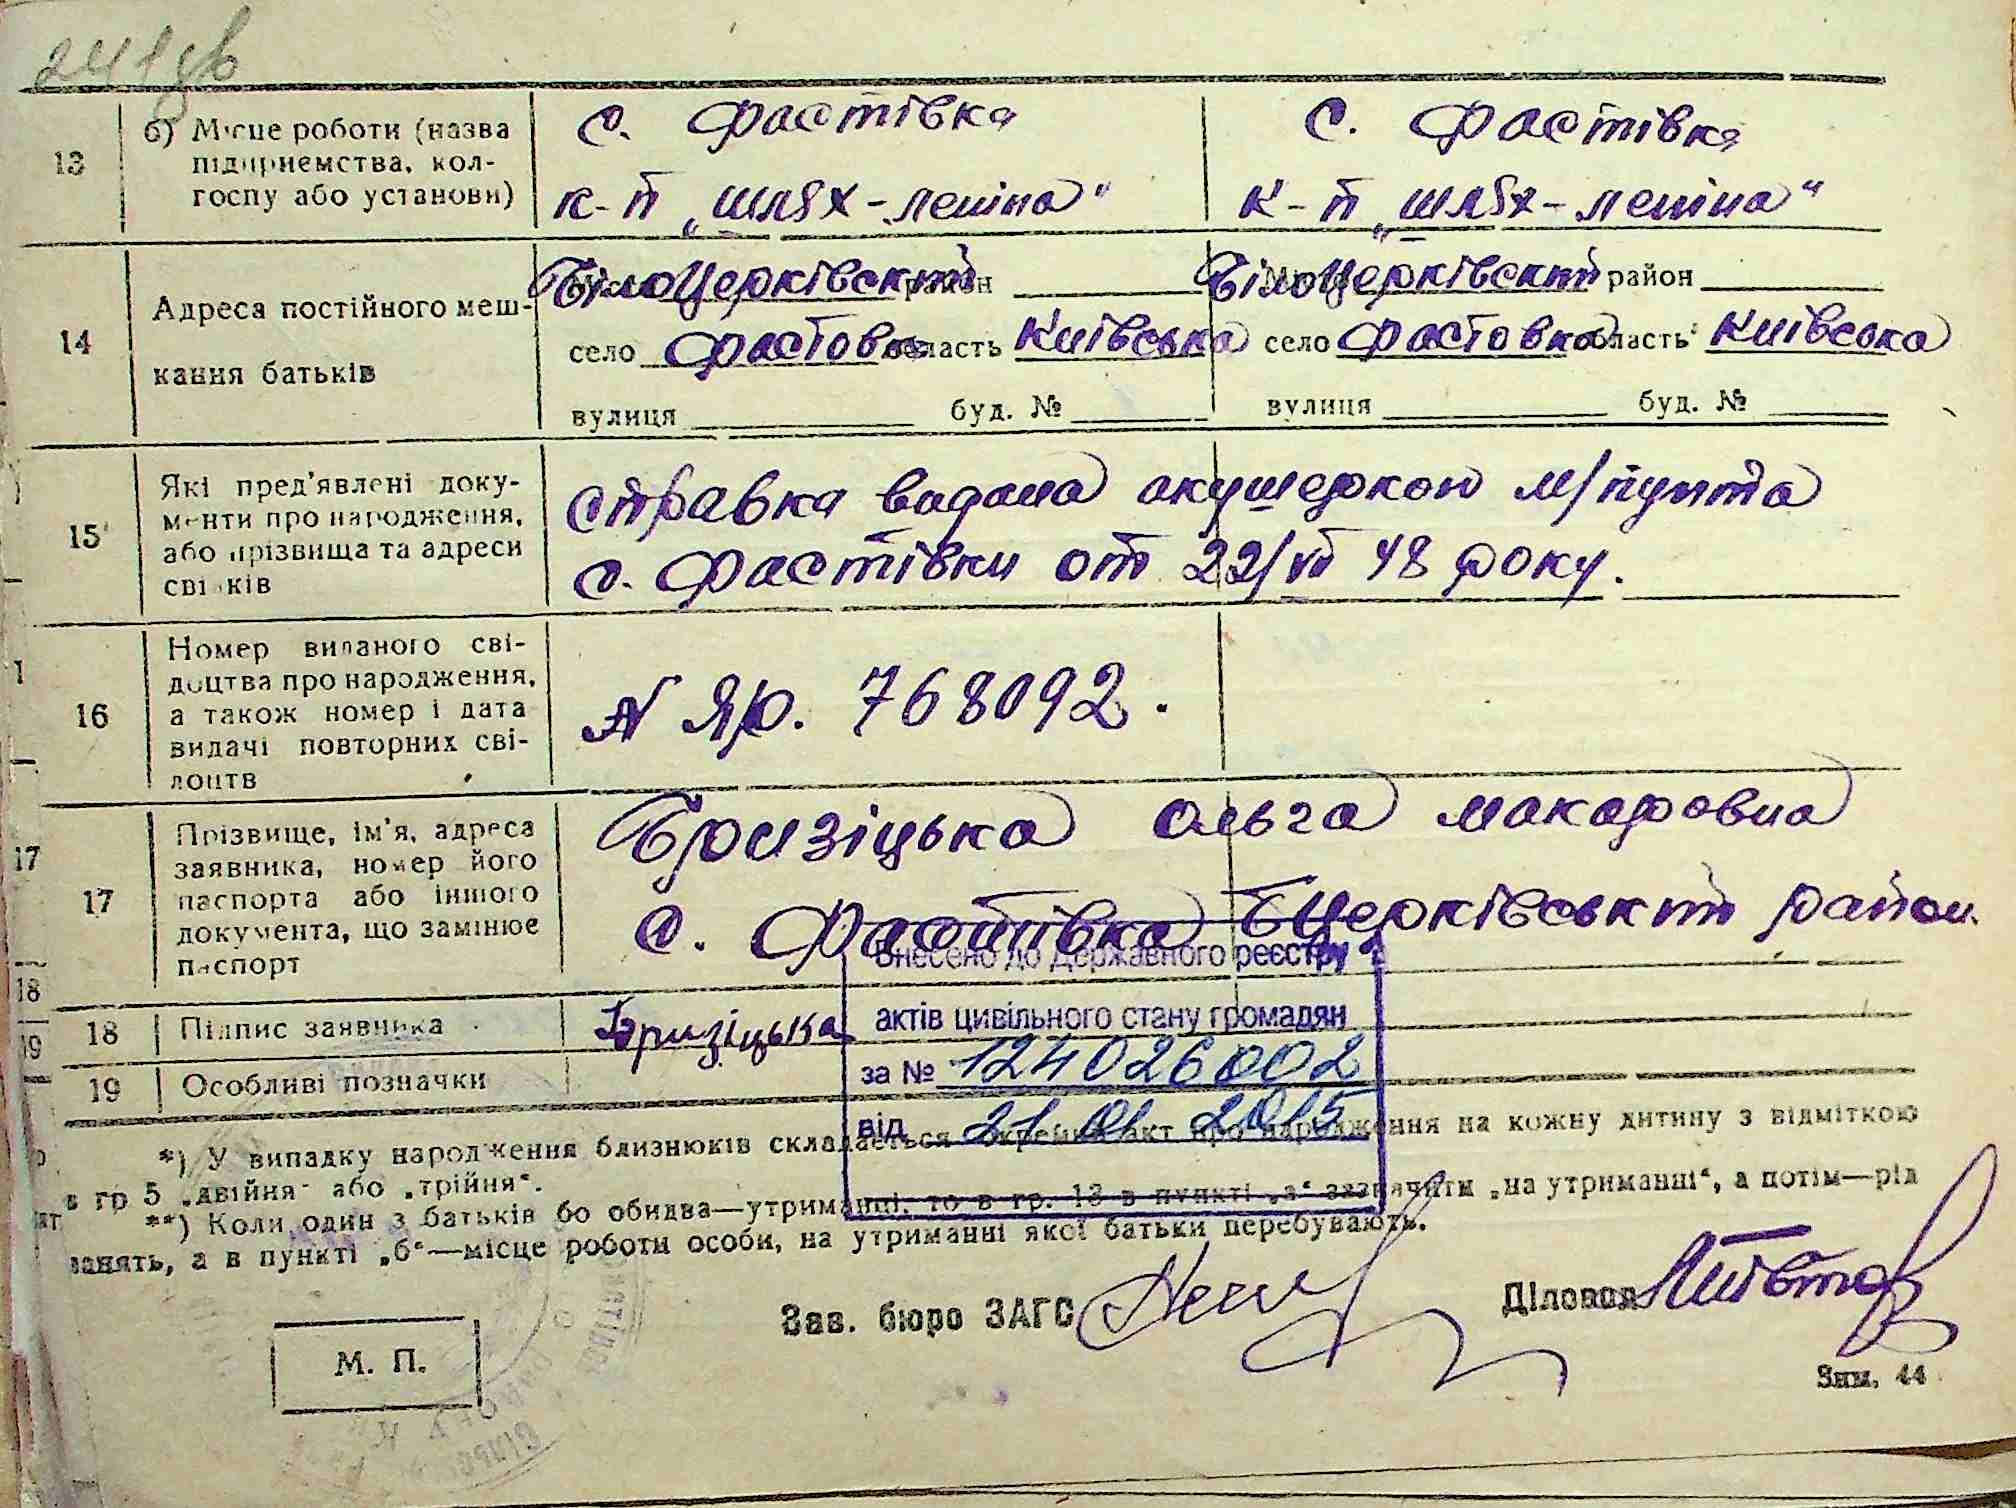 241зв
13
б) Місце роботи (назва
підприємства, кол-
госпу або установи)
с. Фастівка
к-п „шлях-леніна"
с. Фастівка
к-п „шлях-леніна"
14
Адреса постійного меш-
кання батьків
Білоцерківский район
село Фастовка область Київська
вулиця буд. №
Білоцерківский район
село Фастовка область Київська
вулиця буд. №
15
Які пред'явлені доку-
менти про народження,
або прізвища та адреси
свідків
справка видана акушеркою м/пункта
с. Фастівки от 22/VI 48 року.
16
Номер виданого сві-
доцтва про народження,
а також номер і дата
видачі повторних сві-
доцтв
N Яр. 768092.
17
Прізвище, ім'я, адреса
заявника, номер його
паспорта або іншого
документа, що замінює
паспорт
Бризіцька Ольга макаровна
с. Фастівка БЦерківський район.
18
Підпис заявника
Бризіцька
19
Особливі позначки
Внесено до Державного реєстру
актів цивільного стану громадян
за № 124026002
від 21 01 2015
*) У випадку народження близнюків складається окремий акт про народження на кожну дитину з відміткою
в гр 5 „двійня" або „трійня".
**) Коли один з батьків бо обидва—утриманці, то в гр. 13 в пункті „а" зазначити „на утриманні", а потім—рід
занять, а в пункті „б"—місце роботи особи, на утриманні якої батьки перебувають.
Зав. бюро ЗАГС
Діловод
М. П.
Зам. 44
17
18
19